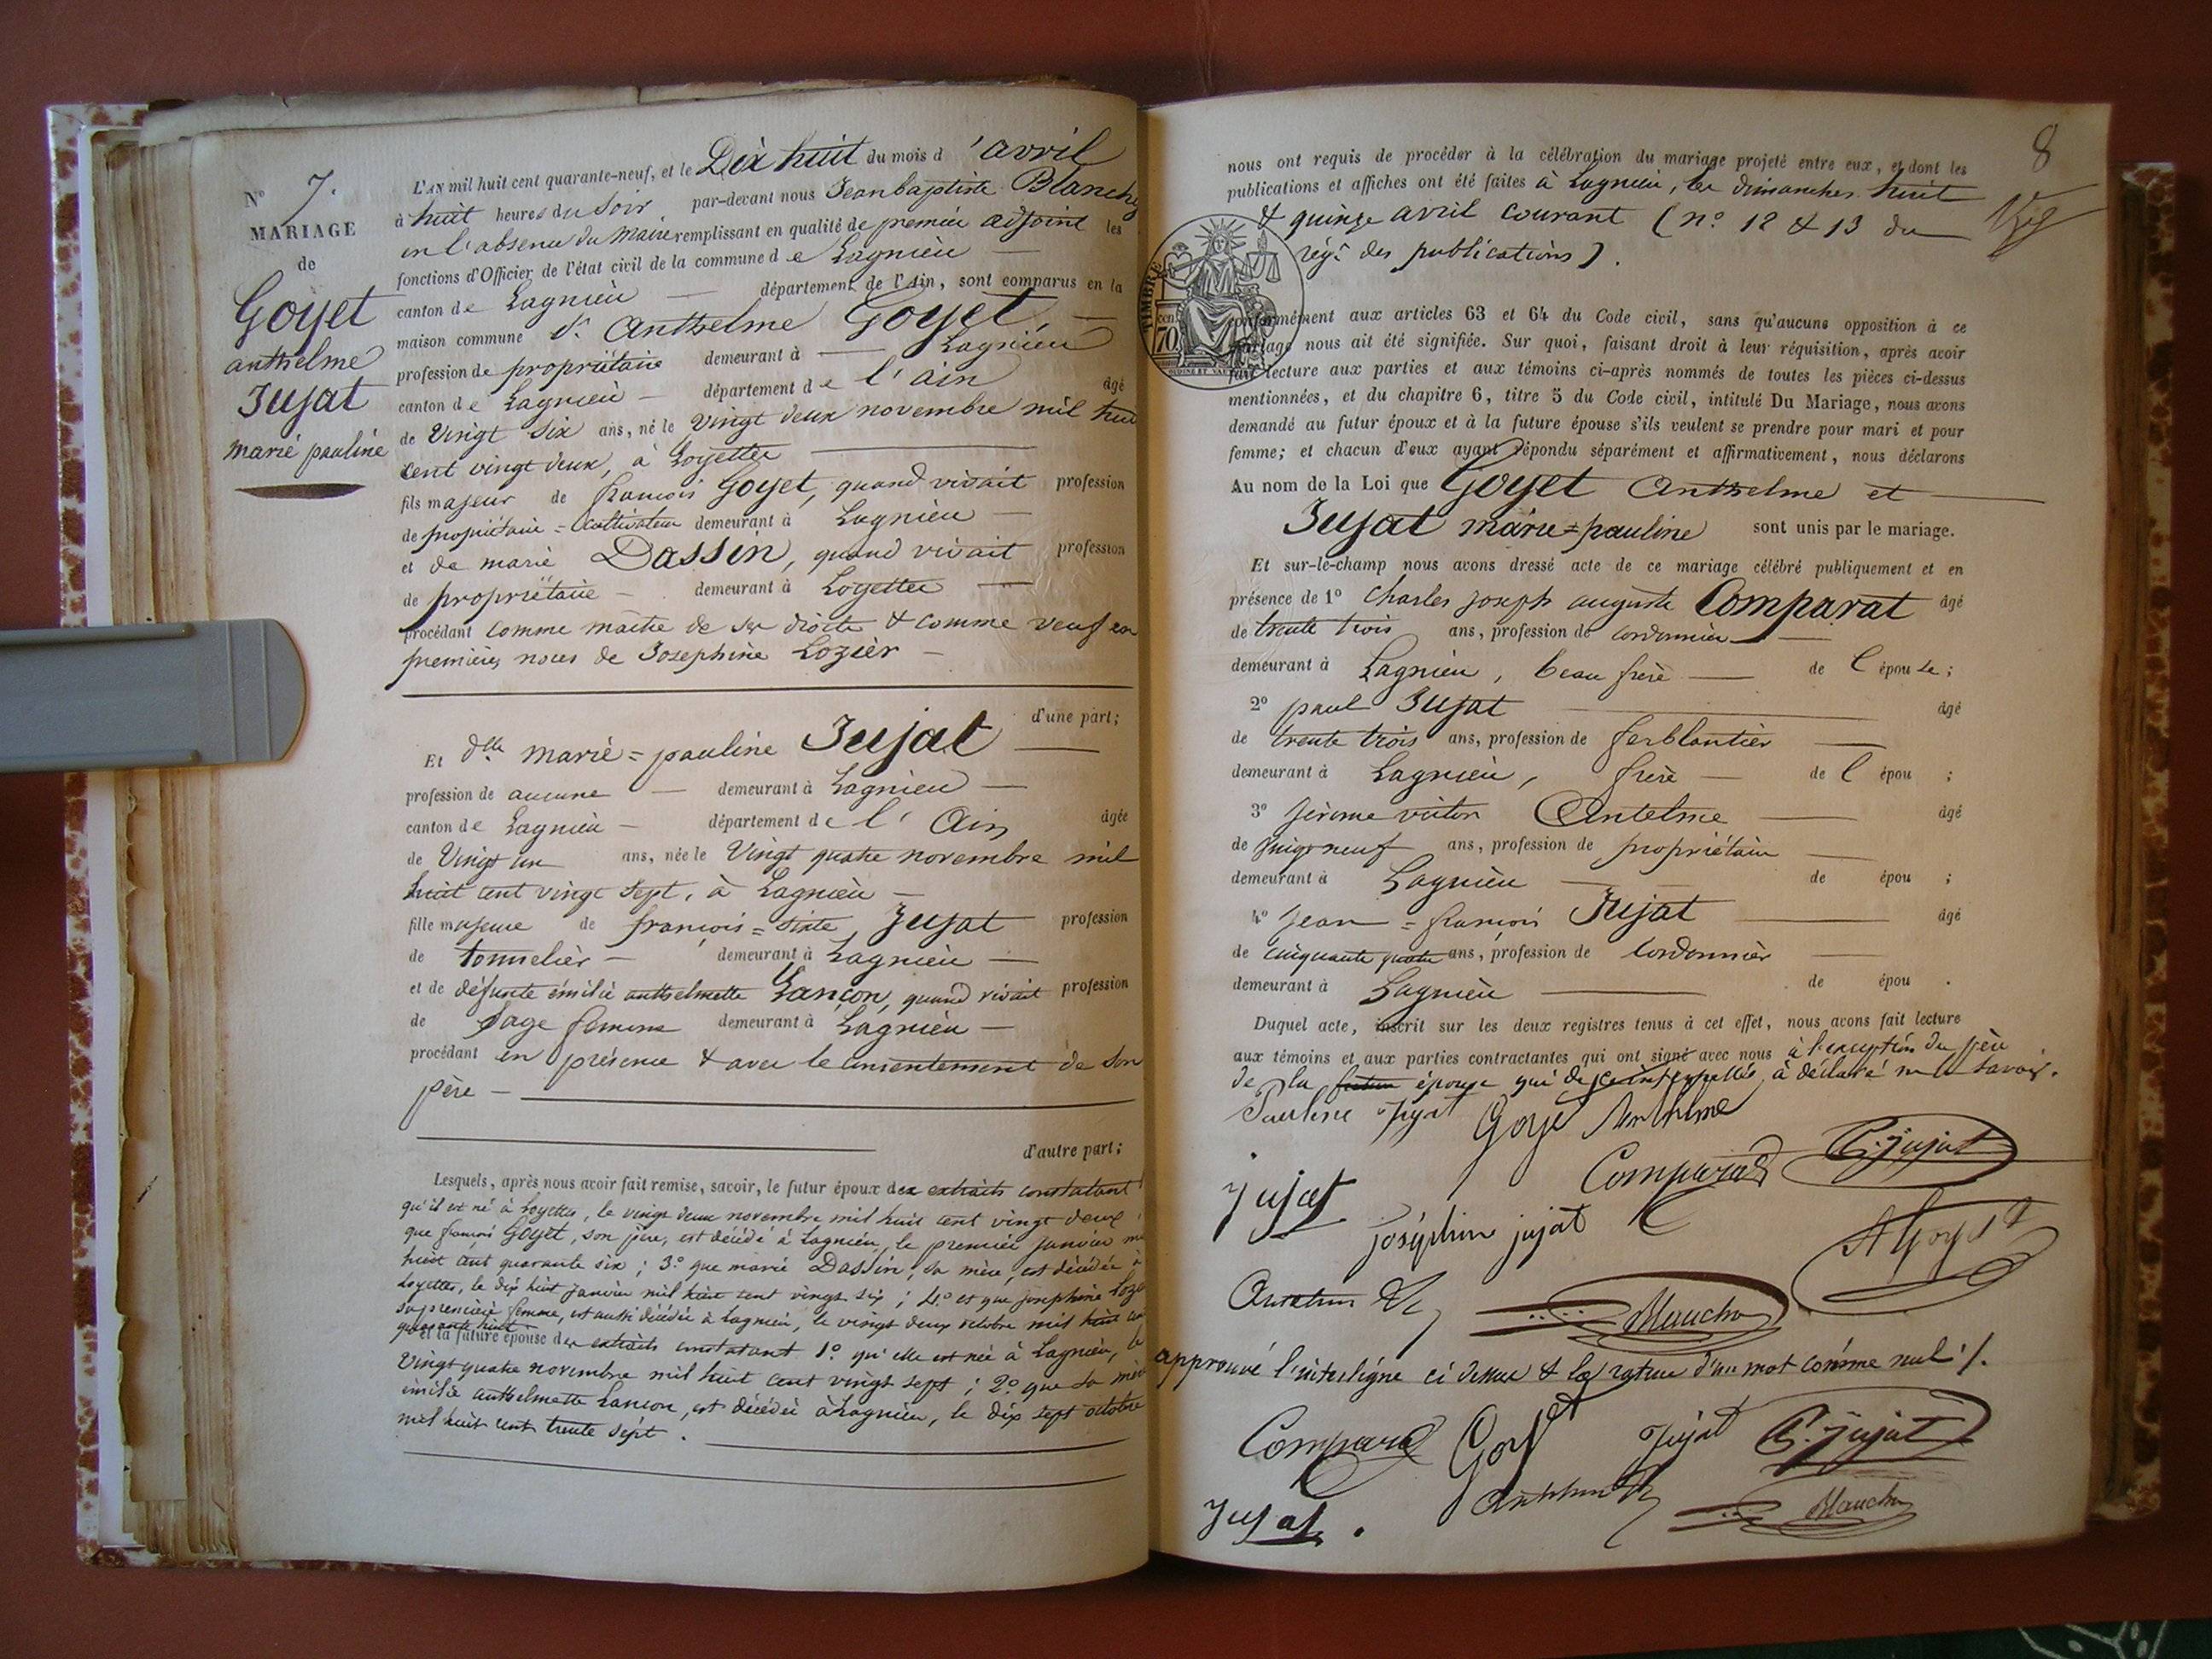 N° 7.
MARIAGE
de
Goyet
anthelme
Jujat
marie pauline
L'AN mil huit cent quarante-neuf, et le Dix huit du mois d'avril
à huit heures du soir par-devant nous Jean baptiste Blanch
en l'absence du Maire remplissant en qualité de premier adjoint les
fonctions d'Officier de l'état civil de la commune de Lagnieu
canton de Lagnieu département de l'Ain, sont comparus en la
maison commune Sr Anthelme Goyet,
profession de propriétaire demeurant à Lagnieu
canton de Lagnieu département de l'ain âgé
de Vingt six ans, né le Vingt deux novembre mil huit
cent vingt deux, à Loyettes
fils majeur de françois Goyet, quand vivait profession
de propriétaire = cultivateur demeurant à Lagnieu
et de marie Dassin, quand vivait profession
de propriétaire demeurant à Loyettes
procédant comme maître de ses droits & comme veuf en
premières noces de Josephine Lozier
d'une part;
Et dlle marie = pauline Jujat
profession de aucune demeurant à Lagnieu
canton de Lagnieu département de l'Ain âgée
de Vingt un ans, née le Vingt quatre novembre mil
huit cent vingt sept, à Lagnieu
fille majeure de françois = Sixte Jujat profession
de tonnelier demeurant à Lagnieu
et de défunte émilie anthelmette Lançon, quand vivait profession
de Sage femme demeurant à Lagnieu
procédant en présence & avec le consentement de son
père
d'autre part;
Lesquels, après nous avoir fait remise, savoir, le futur époux des extraits constatant
qu'il est né à Loyettes, le vingt deux novembre mil huit cent vingt deux
que françois Goyet, son père, est décédé à Lagnieu, le premier janvier mil
huit cent quarante six ; 3° que marie Dassin, sa mère, est décédée à
Loyettes, le dix huit janvier mil huit cent vingt six ; 4° et que josephine Loz
sa première femme, est aussi décédée à Lagnieu, le vingt deux octobre mil huit cent
quarante huit
et la future épouse des extraits constatant 1° qu'elle est née à Lagnieu, le
Vingt quatre novembre mil huit cent vingt sept ; 2° que sa mère
émilie anthelmette Lancon, est décédée à Lagnieu, le dix sept octobre
mil huit cent trente sept.
8
nous ont requis de procéder à la célébration du mariage projeté entre eux, et dont les
publications et affiches ont été faites à Lagnieu, les dimanches huit
& quinze avril courant (n° 12 & 13 du
regr des publications).
TIMBRE
70 CEN
conformément aux articles 63 et 64 du Code civil, sans qu'aucune opposition à ce
mariage nous ait été signifiée. Sur quoi, faisant droit à leur réquisition, après avoir
fait lecture aux parties et aux témoins ci-après nommés de toutes les pièces ci-dessus
mentionnées, et du chapitre 6, titre 5 du Code civil, intitulé Du Mariage, nous avons
demandé au futur époux et à la future épouse s'ils veulent se prendre pour mari et pour
femme; et chacun d'eux ayant répondu séparément et affirmativement, nous déclarons
Au nom de la Loi que Goyet Anthelme et
Jujat marie = pauline sont unis par le mariage.
Et sur-le-champ nous avons dressé acte de ce mariage célébré publiquement et en
présence de 1° Charles joseph auguste Comparat âgé
de trente trois ans, profession de cordonnier
demeurant à Lagnieu, beau frère de l'épouse;
2° paul Jujat âgé
de trente trois ans, profession de ferblantier
demeurant à Lagnieu, frère de l'épou ;
3° jérome victor Antelme âgé
de vingt neuf ans, profession de propriétaire
demeurant à Lagnieu de épou ;
4° Jean = françois Jujat âgé
de cinquante quatre ans, profession de Cordonnier
demeurant à Lagnieu de épou .
Duquel acte, inscrit sur les deux registres tenus à cet effet, nous avons fait lecture
aux témoins et aux parties contractantes qui ont signé avec nous à l'exception du père
de la future épouse qui de ce interpellé, à déclaré ne le savoir.
Pauline Jujat Goyet Anthelme
Comparat P. jujat
Jujat
joséphine jujat A Goyet
Blanchy
approuvé l'interligne ci dessus & la rature d'un mot comme nul /.
Comparat Goyet Jujat P. jujat
Jujat. Blanchy